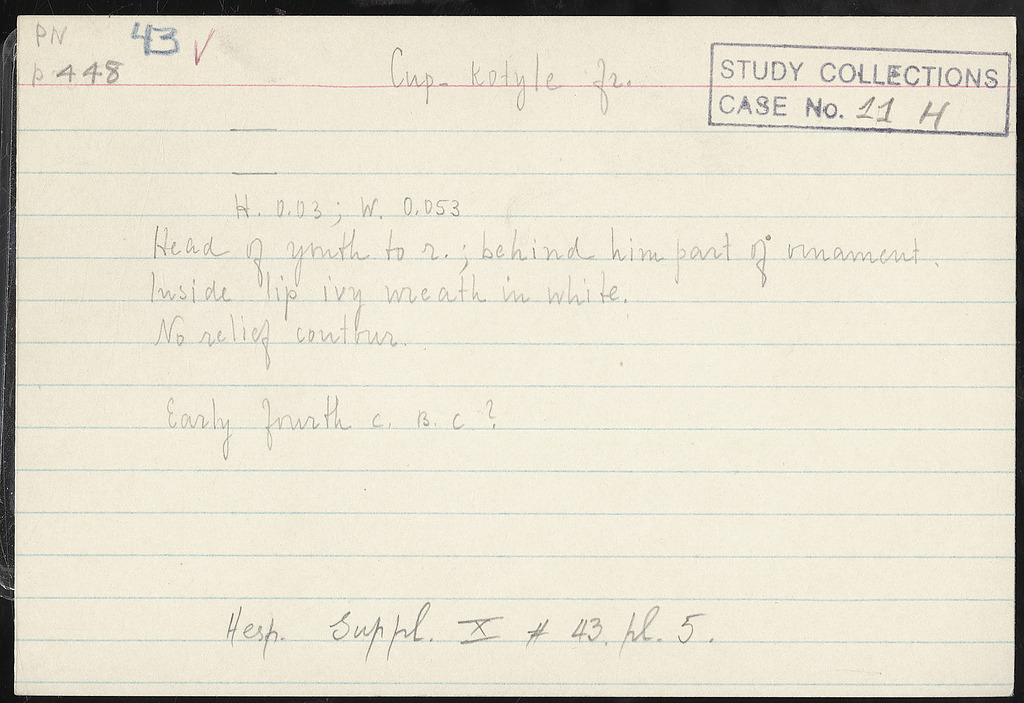 PN 43 ✓
P 448
Cup-Kotyle fr.
STUDY COLLECTIONS
CASE No. 11 H
H. 0.03; W. 0.053
Head of youth to r.; behind him part of ornament.
Inside lip ivy wreath in white.
No relief contour.
Early fourth c. B.C?
Hesp. Suppl. X # 43, pl. 5.